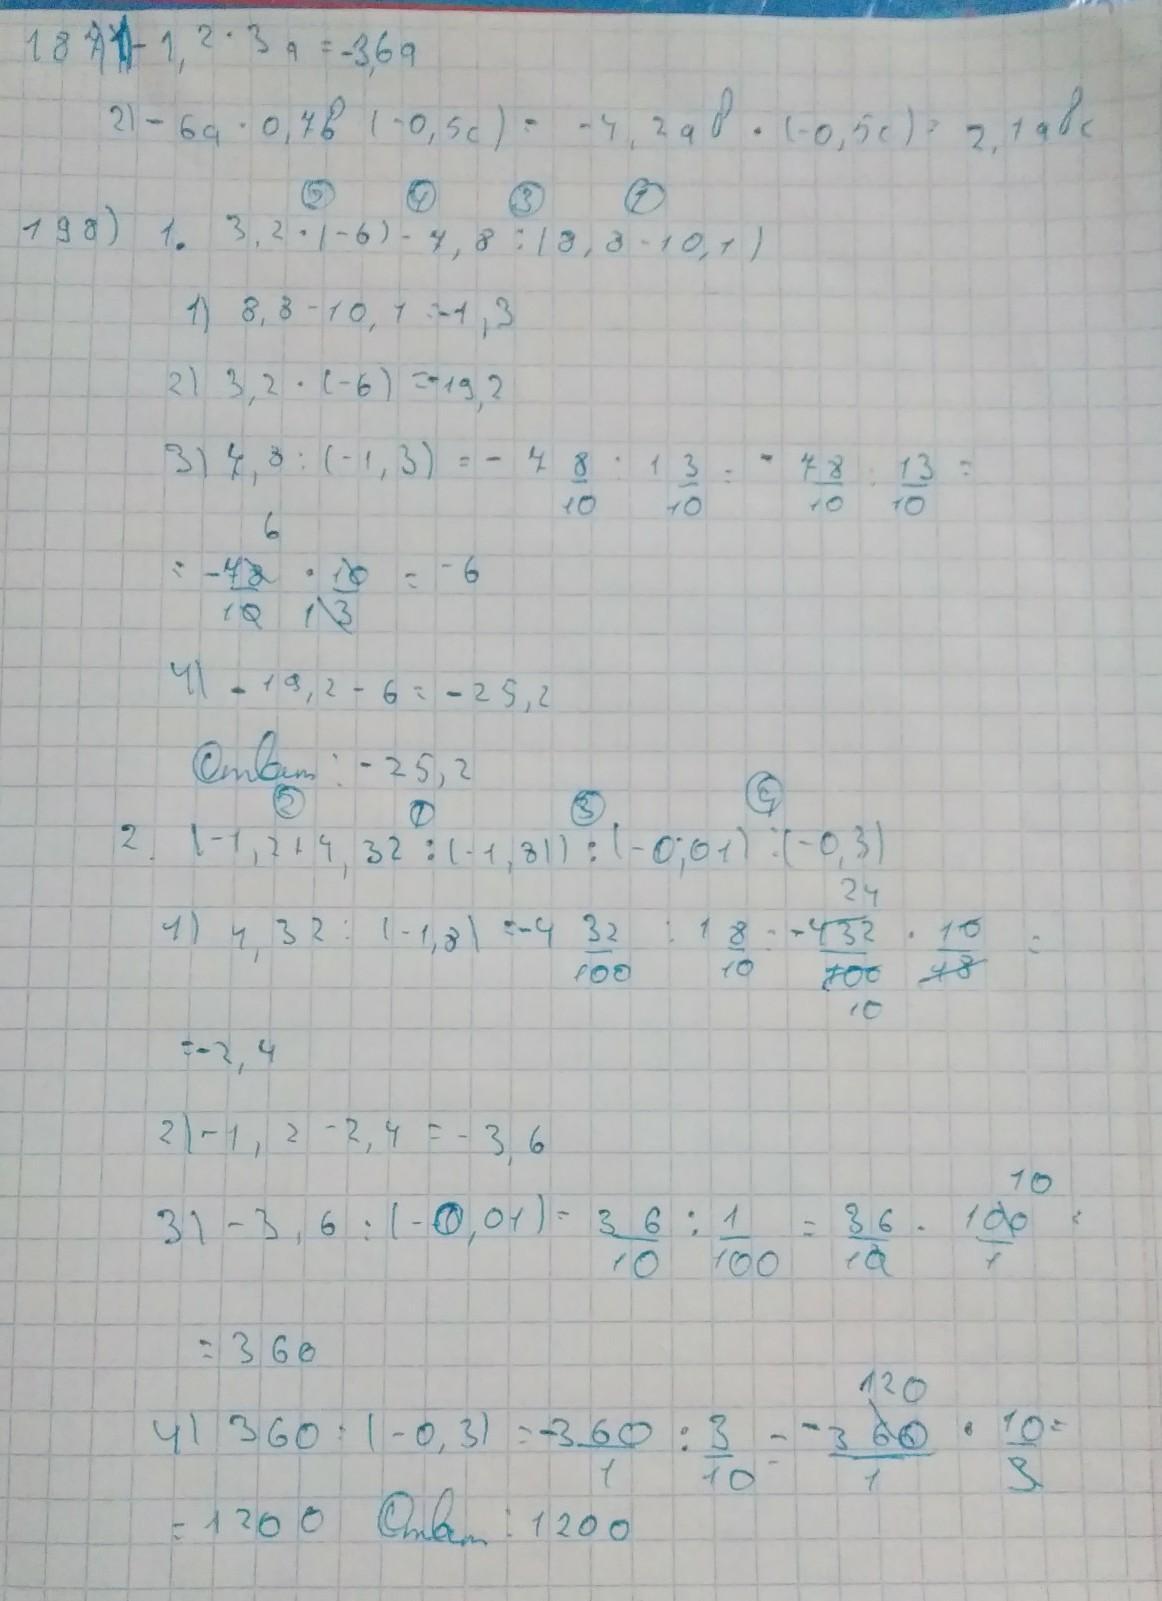 187) 1) -1,2 · 3a = -3,6a
2) -6a · 0,7в (-0,5c) = -4,2aв · (-0,5c) = 2,1aвc
② ④ ③ ①
198) 1. 3,2 · (-6) - 7,8 : (8,8 - 10,1)
1) 8,8 - 10,1 = -1,3
2) 3,2 · (-6) = -19,2
3) 7,8 : (-1,3) = - 7 8/10 : 1 3/10 = - 78/10 : 13/10 =
6
= -78/10 · 10/13 = -6
4) -19,2 - 6 = -25,2
Ответ: -25,2
② ① ③ ④
2. (-1,2 + 4,32 : (-1,8)) : (-0,01) : (-0,3)
24
1) 4,32 : (-1,8) = -4 32/100 : 1 8/10 = -432/100 · 10/18 =
10
= -2,4
2) -1,2 - 2,4 = -3,6
10
3) -3,6 : (-0,01) = 36/10 : 1/100 = 36/10 · 100/1 =
= 360
120
4) 360 : (-0,3) = -360/1 : 3/10 = -360/1 · 10/3 =
= 1200 Ответ: 1200